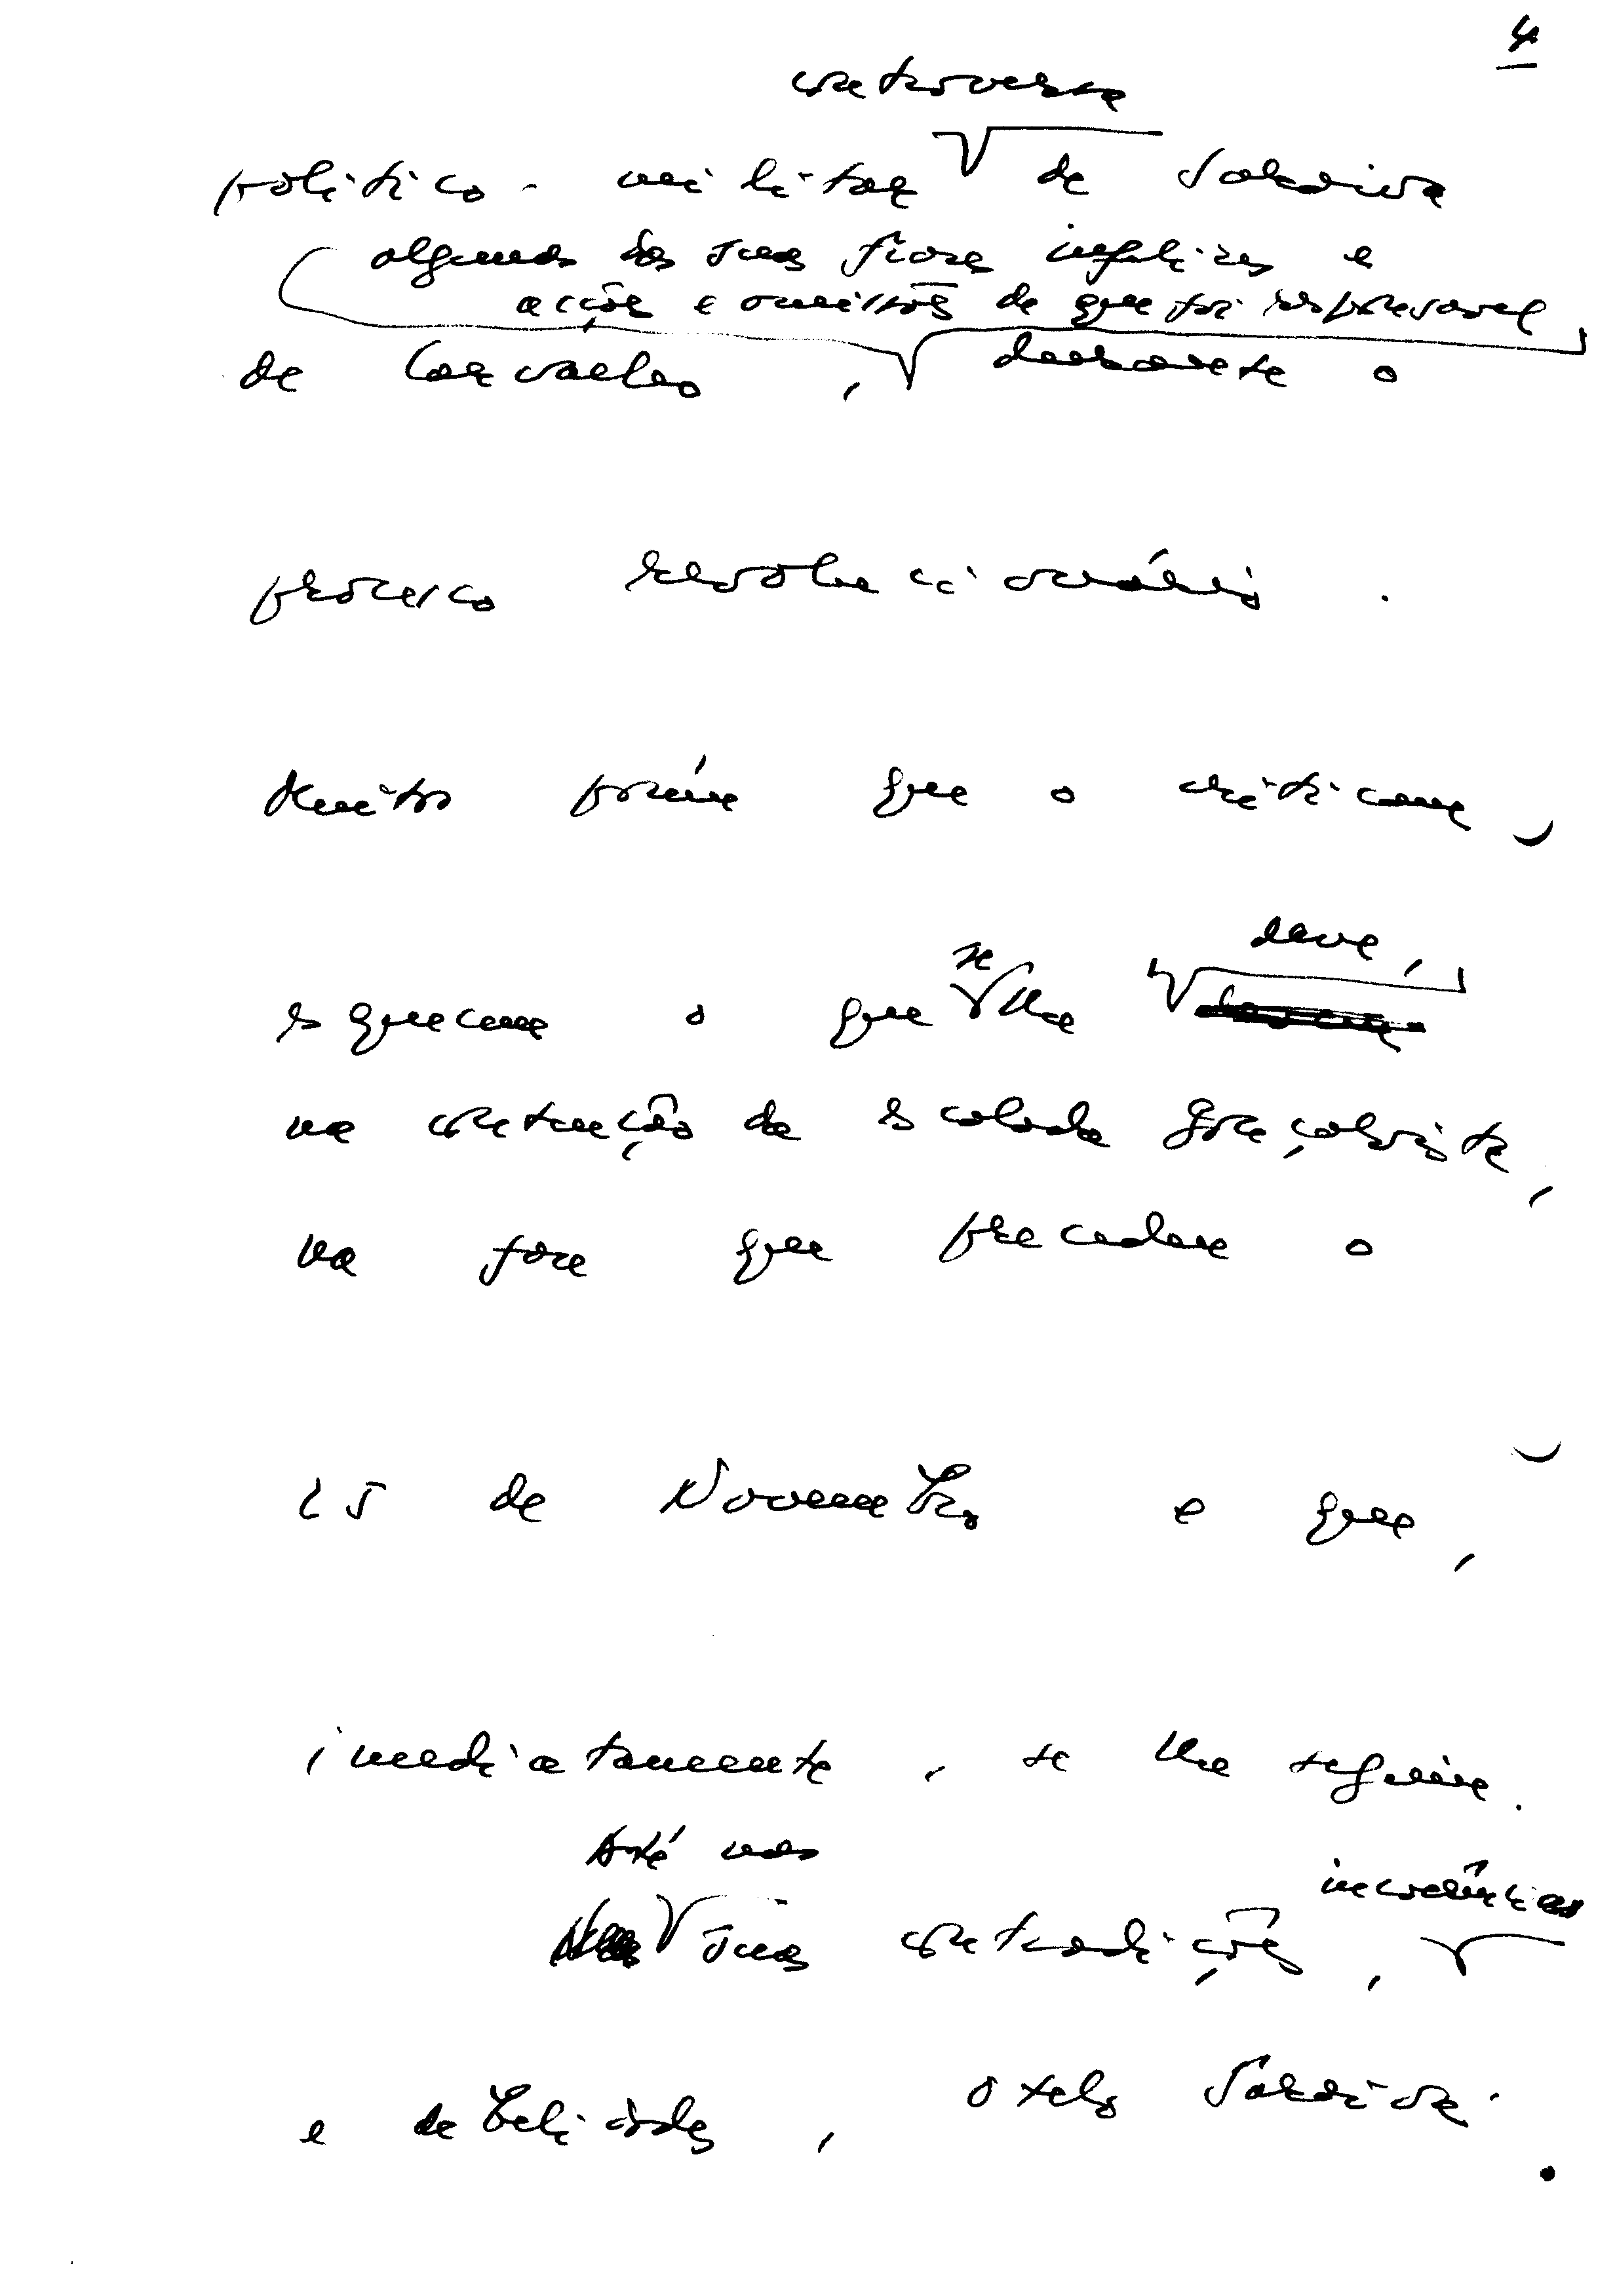 4
controversa
político-militar de Saraiva
algumas das suas frases infelizes e
acções e omissões de que foi responsável
de Carvalho, durante o
processo revolucionário.
Muitos porém que o criticam,
esquecem o que se lhe deve,
na contenção da escalada gonçalvista,
na fase que precedeu o
25 de Novembro e que,
imediatamente, se lhe seguiu.
Até nas
suas contradições, incoerências
e debilidades, Otelo Saraiva.